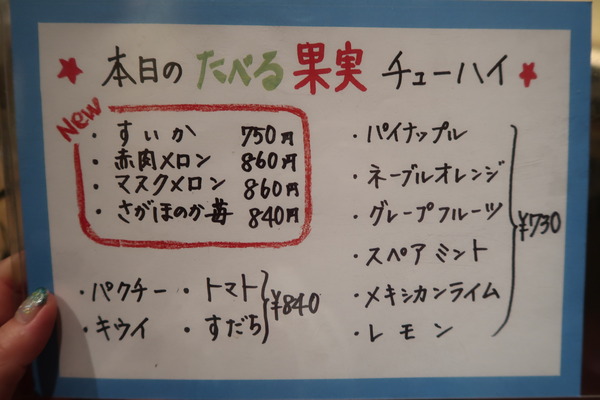 ★本日のたべる果実チューハイ★
New
・すいか 750円
・赤肉メロン 860円
・マスクメロン 860円
・さがほのか苺 840円
・パクチー ・トマト
・キウイ ・すだち
¥840
・パイナップル
・ネーブルオレンジ
・グレープフルーツ
・スペアミント
・メキシカンライム
・レモン
¥730